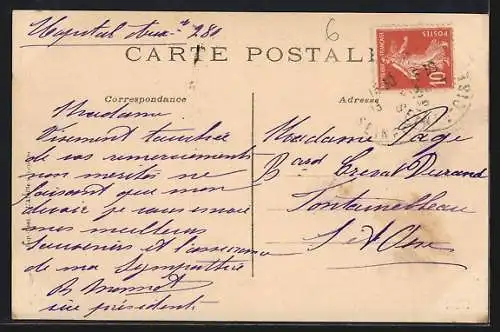 Hopital Aux.re 280
6
CARTE POSTALE
POSTES
10
Correspondance
Adresse
Madame.
Vivement touchée
de vos remerciements
non merités ne
faisant que mon
devoir je vous envoie
mes meilleurs
souvenirs et l'assurance
de ma sympathie
vice président
Madame Page
Bard
Fontainebleau
S et M